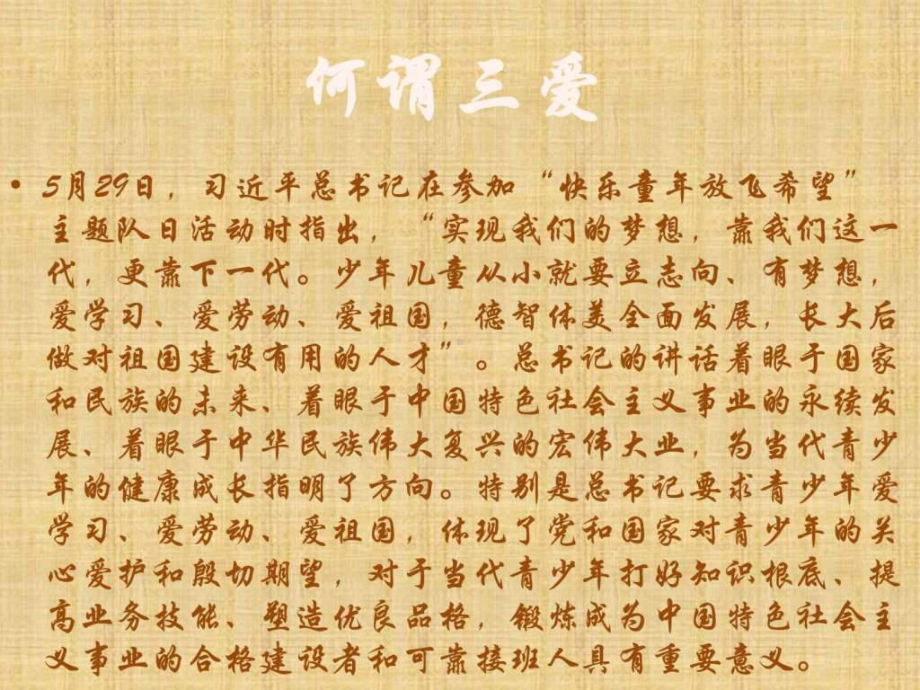 何谓三爱
• 5月29日，习近平总书记在参加“快乐童年放飞希望”
主题队日活动时指出，“实现我们的梦想，靠我们这一
代，更靠下一代。少年儿童从小就要立志向、有梦想，
爱学习、爱劳动、爱祖国，德智体美全面发展，长大后
做对祖国建设有用的人才”。总书记的讲话着眼于国家
和民族的未来、着眼于中国特色社会主义事业的永续发
展、着眼于中华民族伟大复兴的宏伟大业，为当代青少
年的健康成长指明了方向。特别是总书记要求青少年爱
学习、爱劳动、爱祖国，体现了党和国家对青少年的关
心爱护和殷切期望，对于当代青少年打好知识根底、提
高业务技能、塑造优良品格，锻炼成为中国特色社会主
义事业的合格建设者和可靠接班人具有重要意义。